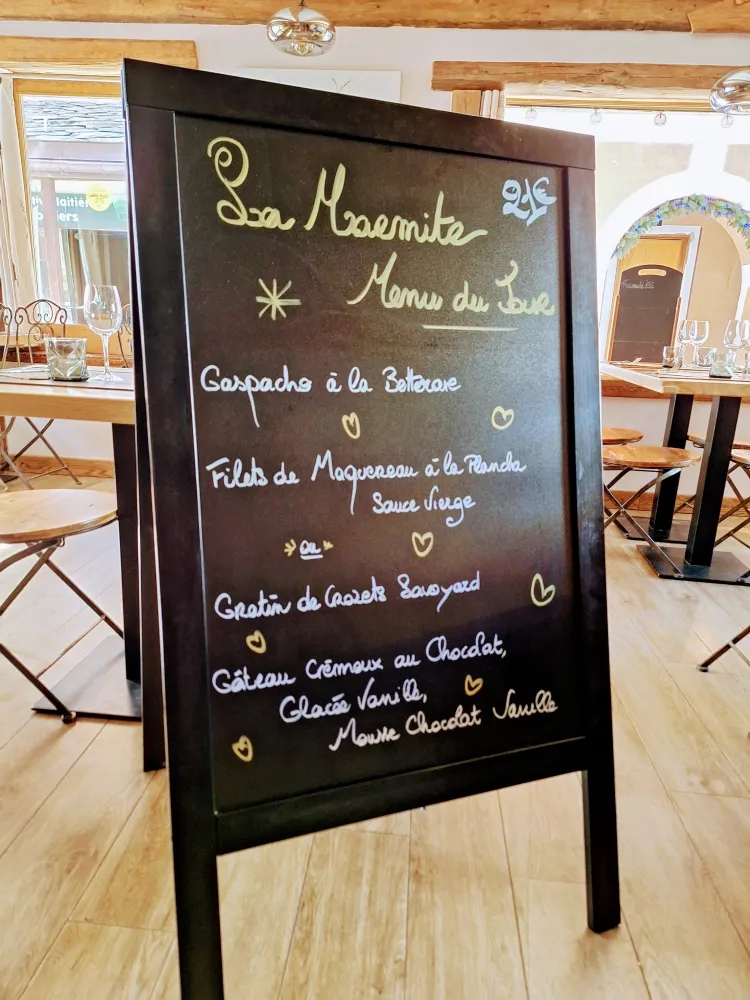 La Marmite 21€
Menu du Jour
Gaspacho à la Betterave
Filets de Maquereau à la Plancha
Sauce Vierge
ou
Gratin de Crozets Savoyard
Gâteau Crémeux au Chocolat,
Glacée Vanille,
Mousse Chocolat Vanille